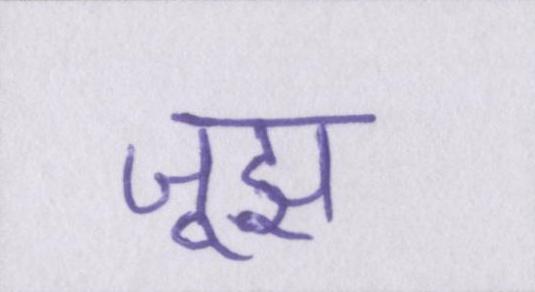 जूझ